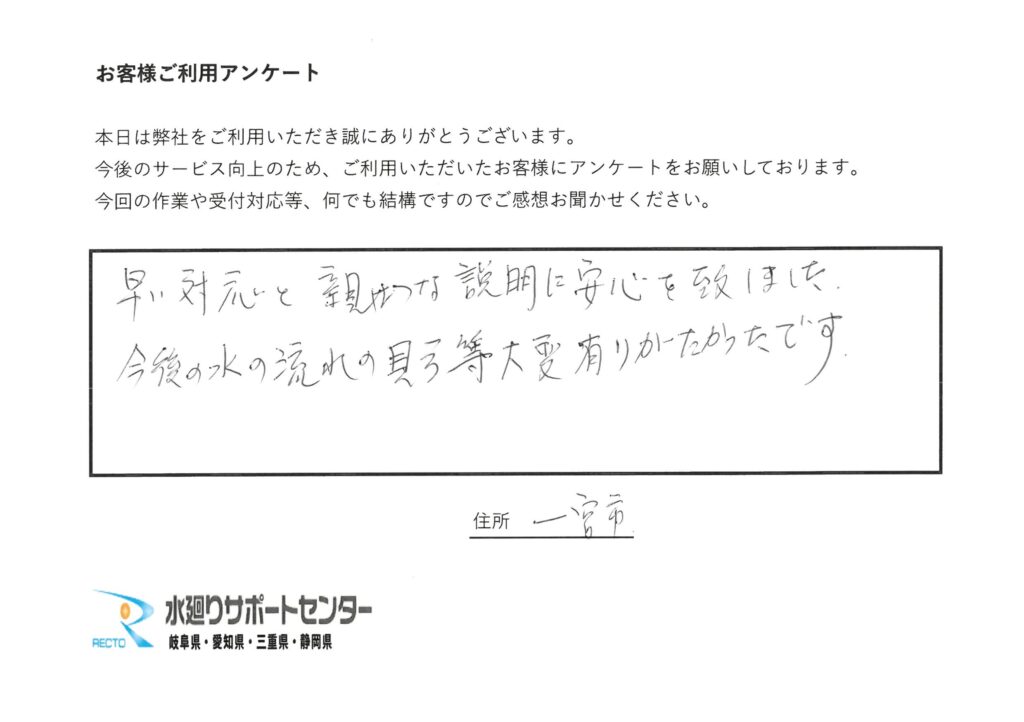 お客様ご利用アンケート
本日は弊社をご利用いただき誠にありがとうございます。
今後のサービス向上のため、ご利用いただいたお客様にアンケートをお願いしております。
今回の作業や受付対応等、何でも結構ですのでご感想お聞かせください。
早い対応と親せつな説明に安心を致しました.
今後の水の流れの具合等大変有りがたかったです.
住所 一宮市
RECTO 水廻りサポートセンター
岐阜県・愛知県・三重県・静岡県